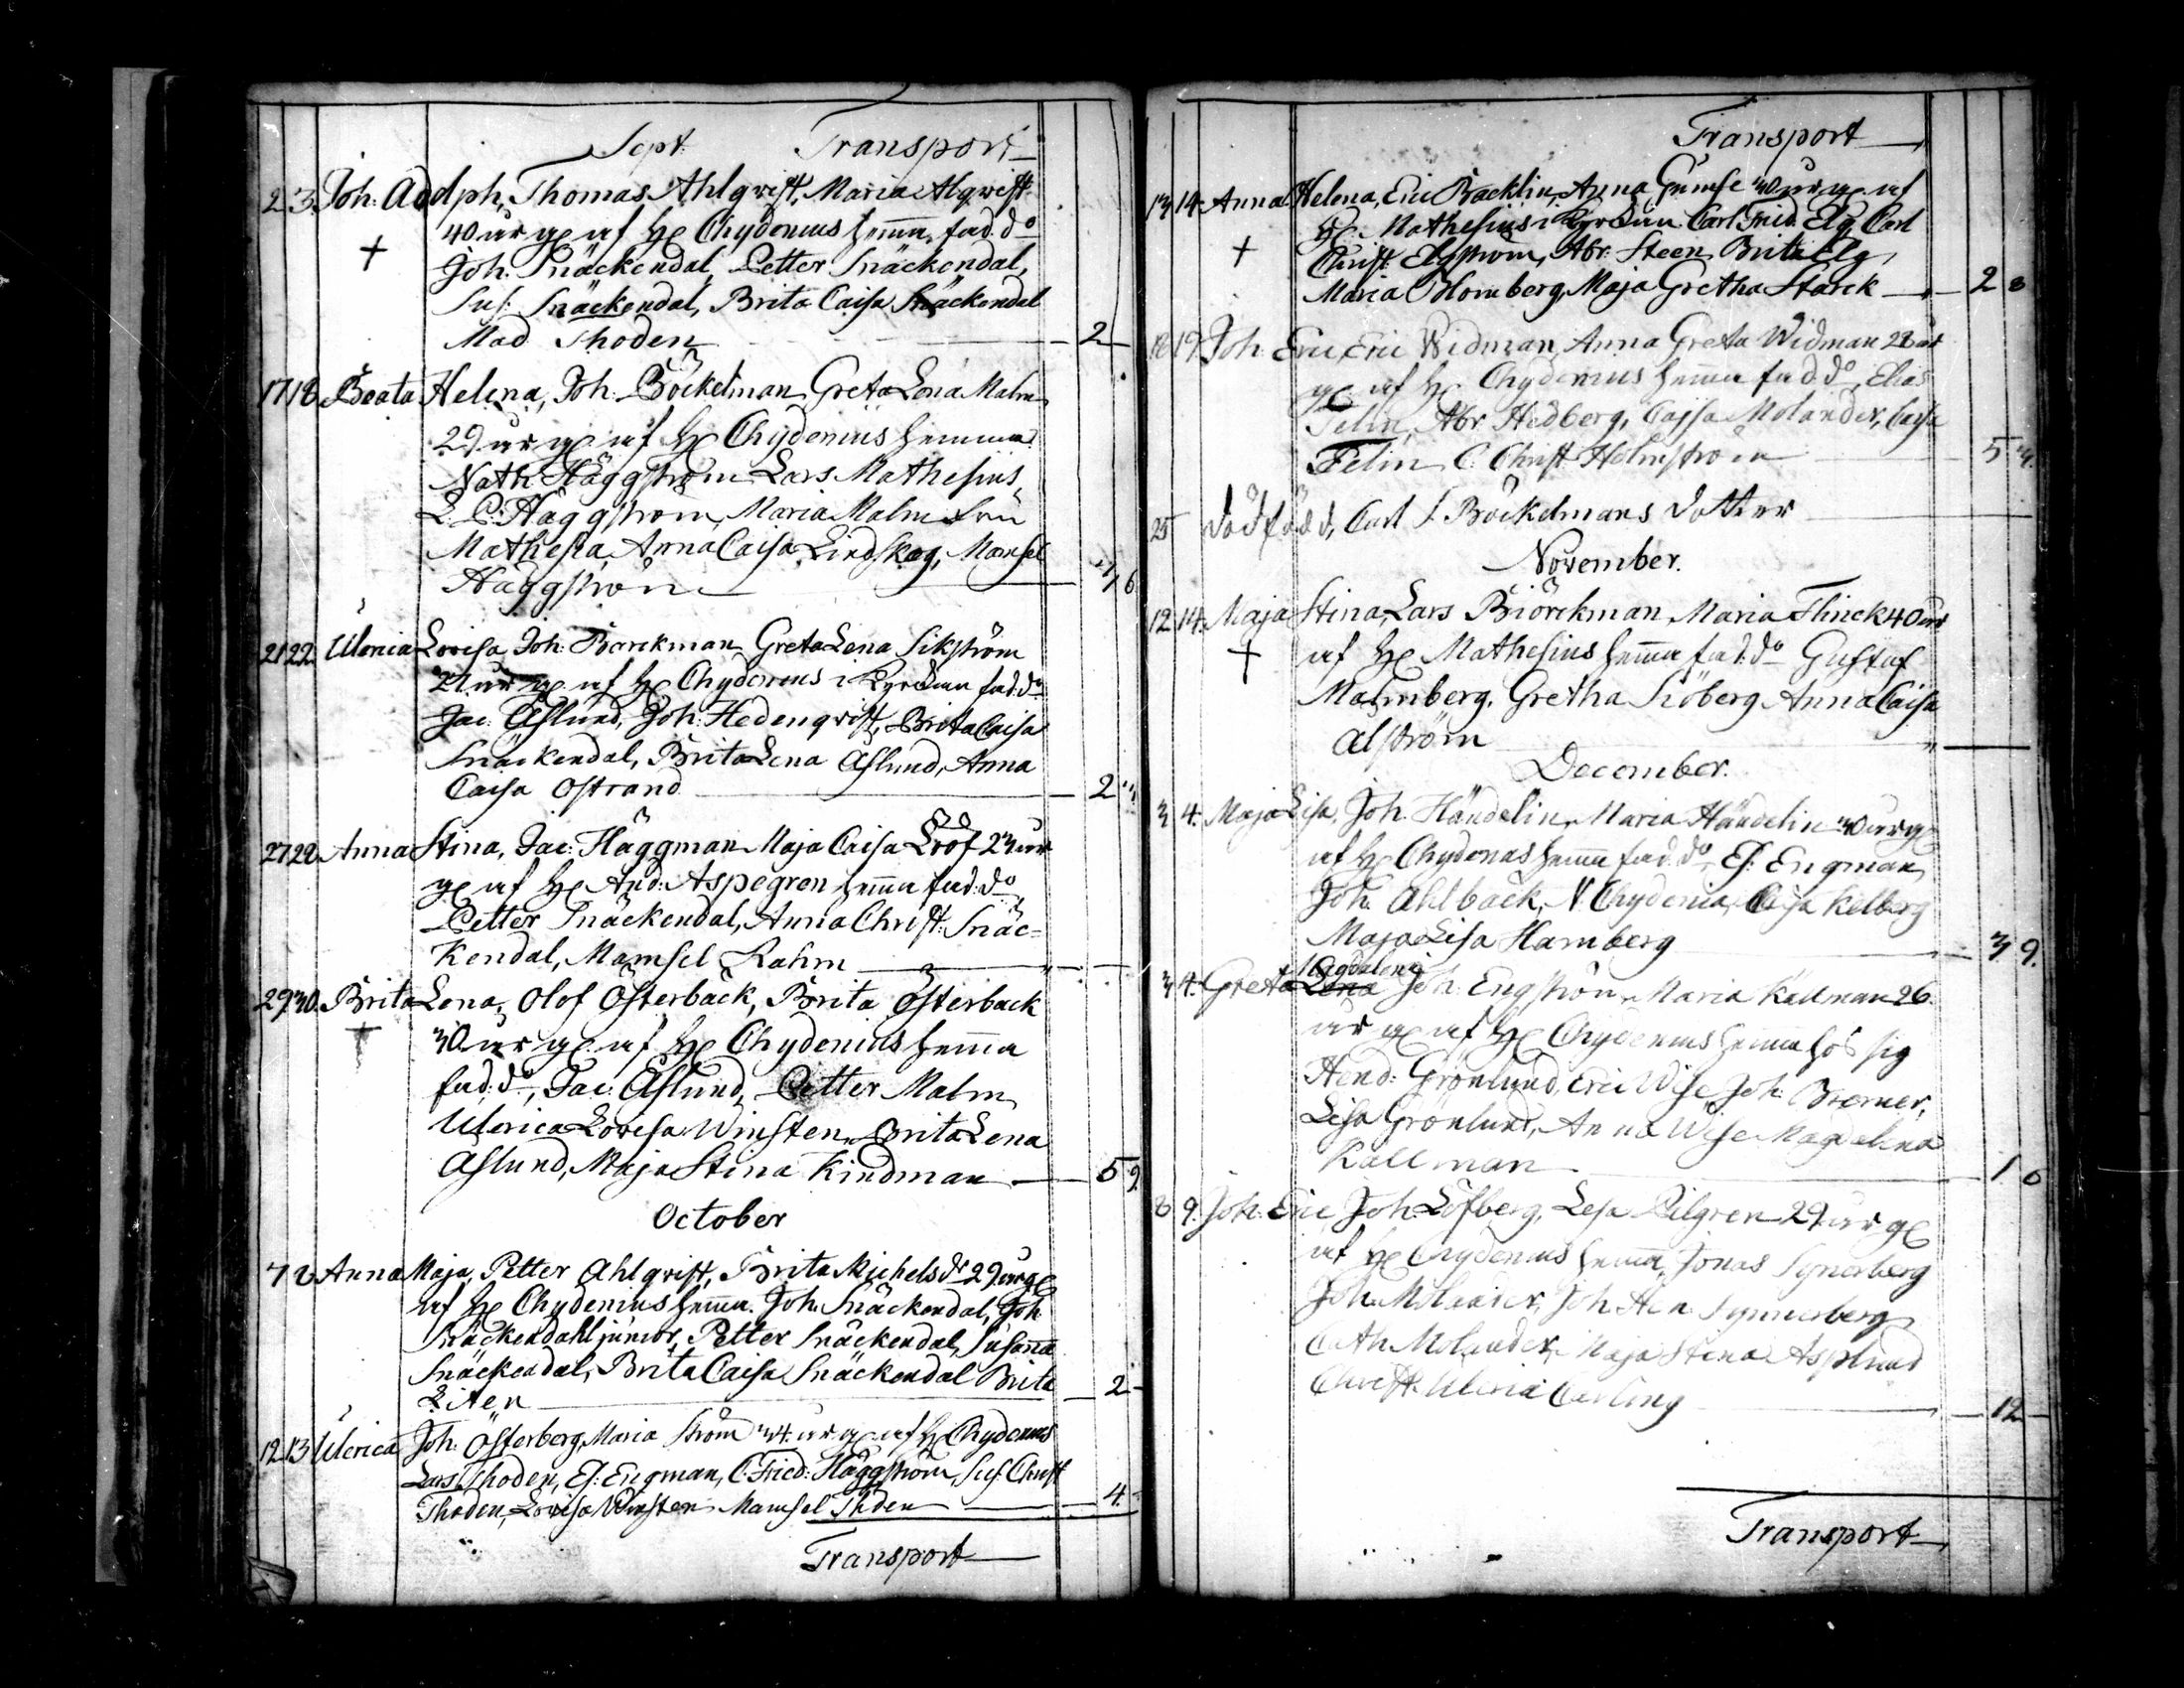 Sept. Transport
2 3 Joh: Adolph, Thomas Ahlqvist, Maria Alqvist
40 år g. af H. Chydenius hemma, fad. do
Joh. Snäckendal, Petter Snäckendal,
Sus. Snäckendal, Brita Caisa Snäckendal
Mad Thoden 2
17 18 Beata Helena, Joh. Böckelman Greta Lena Malm
29 år g. af H. Chydenius hemma
Nath. Häggström Lars Mathesius,
L. P. Häggström, Maria Malm Fru
Mathesia, Anna Caisa Lindskog, Mamsel
Häggström 6
21 22 Ulerica Lovisa, Joh. Borckman Greta Lena Sikström
år g. af H. Chydenius i Kyrckan fad. do
Jac: Åslund, Joh. Hedenqvist, Brita Caisa
Snäckendal, Brita Lena Åslund, Anna
Caisa Ostrand 2
27 28 Anna Stina, Jac: Häggman Maja Caisa Lööf 23 år
g. af H. And: Aspegren hemma fad. do
Petter Snäckendal, Anna Christ: Snäc=
kendal, Mamsel Rahm
29 30. Brita Lena, Olof Österback, Brita Österback
30 år g. af H. Chydenius hemma
fad: do, Jac: Åslund, Petter Malm
Ulerica Lovisa Winsten, Brita Lena
Åslund, Maja Stina Kindman 5 9
October
7 8 Anna Maja, Petter Ahlqvist, Brita Michelsdr 29 år g.
af H. Chydenius hemma. Joh. Snäckendal, Joh.
Snäckendahl junior, Petter Snäckendal, Susanna
Snäckendal, Brita Caisa Snäckendal Brita
Liten 2
12 13 Ulerica Joh. Österberg, Maria Ström 34 år g. af H. Chydenius
Lars Thoden, Es: Engman, C. Fried: Häggström, Sus. Christ
Thoden, Lovisa Winsten Mamsel Thden 4.
Transport
Transport
13 14 Anna Helena, Eric Backlin, Anna Gumse 30 år g. af
H. Mathesius i Kyrckan Carl Fried. Elg, Carl
Christ: Elgström, Abr: Steen Brita Elg,
Maria Blomberg, Maja Gretha Starck 2 8
18 19 Joh. Eric, Eric Widman Anna Greta Widman 28 år
g. af H. Chydenius hemma fad. do, Elias
Felin, Abr Hedberg, Cajsa Molander, Caisa
Felin C. Christ Holmström 5 3.
25 dödfödd, Carl J. Böckelmans dotter
November.
12 14. Maja Stina, Lars Biörckman Maria Flinck 40 år
af H. Mathesius hemma fad. do Gustaf
Malmberg, Gretha Siöberg Anna Caisa
Alström
December.
3 4. Maja Lisa, Joh. Händelin, Maria Händelin 30 år g.
af H. Chydenius hemma fad. do, Es. Engman
Joh. Ahlback, N. Chydenia, Caisa Kelberg
Maja Lisa Hamberg 3 9.
Magdalena
3 4. Greta Lena Joh. Engström, Maria Kallman 26
år g. af H. Chydenius hemma hos sig
Hend: Grönlund, Eric Wise Joh. Bremer,
Lisa Grönlund, Anna Wise Magdalena
Kallman 1 6
8 9. Joh. Eric Joh. Löfberg, Lesa Pilgren 29 år g.
af H. Chydenius hemma, Jonas Synerberg
Joh. Molander, Joh. Hen. Synnerberg
Cath Molander, Maja Stina Asplund
Christ. Ulerica Carling 12
Transport